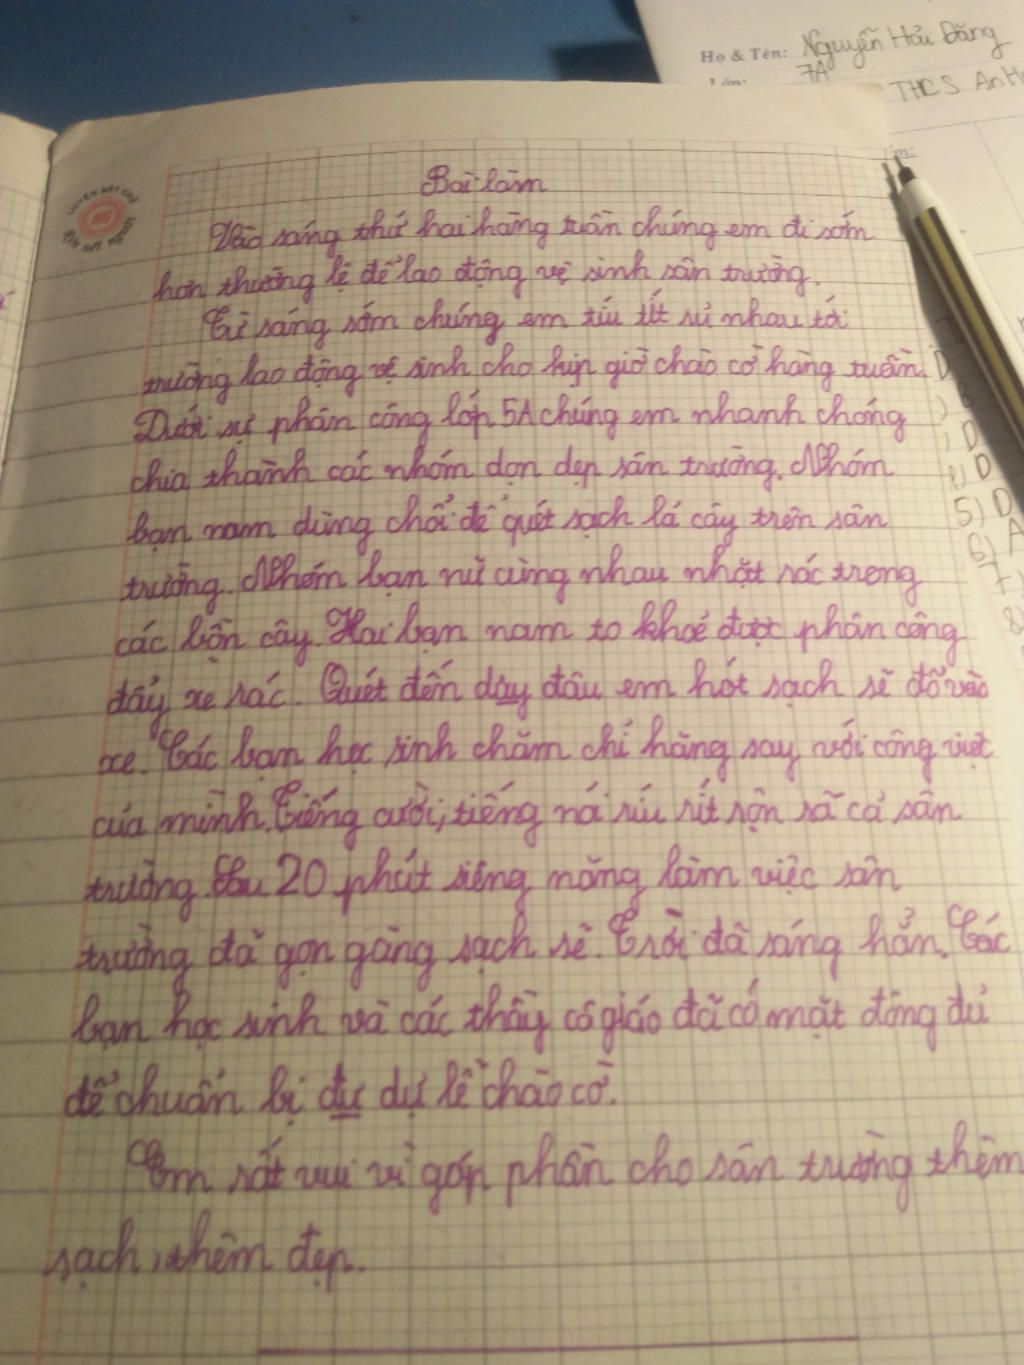 Họ & Tên: Nguyễn Hải Đăng
Lớp: 7A
THCS An
LUYỆN NÉT CHỮ
RÈN NẾT NGƯỜI
Bài làm
Vào sáng thứ hai hàng tuần chúng em đi sớm
hơn thường lệ để lao động vệ sinh sân trường.
Từ sáng sớm chúng em tíu tít rủ nhau tới
trường lao động vệ sinh cho kịp giờ chào cờ hàng tuần.
Dưới sự phân công lớp 5A chúng em nhanh chóng
chia thành các nhóm dọn dẹp sân trường. Nhóm
bạn nam dùng chổi để quét sạch lá cây trên sân
trường. Nhóm bạn nữ cùng nhau nhặt rác trong
các bồn cây. Hai bạn nam to khoẻ được phân công
đẩy xe rác. Quét đến đây đâu em hót sạch sẽ đổ vào
xe. Các bạn học sinh chăm chỉ hăng say với công việc
của mình. Tiếng cười, tiếng nói ríu rít rộn rã cả sân
trường. Sau 20 phút siêng năng làm việc sân
trường đã gọn gàng sạch sẽ. Trời đã sáng hẳn. Các
bạn học sinh và các thầy cô giáo đã có mặt đông đủ
để chuẩn bị dự dự lễ chào cờ.
Em rất vui vì góp phần cho sân trường thêm
sạch, thêm đẹp.
D
B
D
D
5) D
6) A
7)
8)